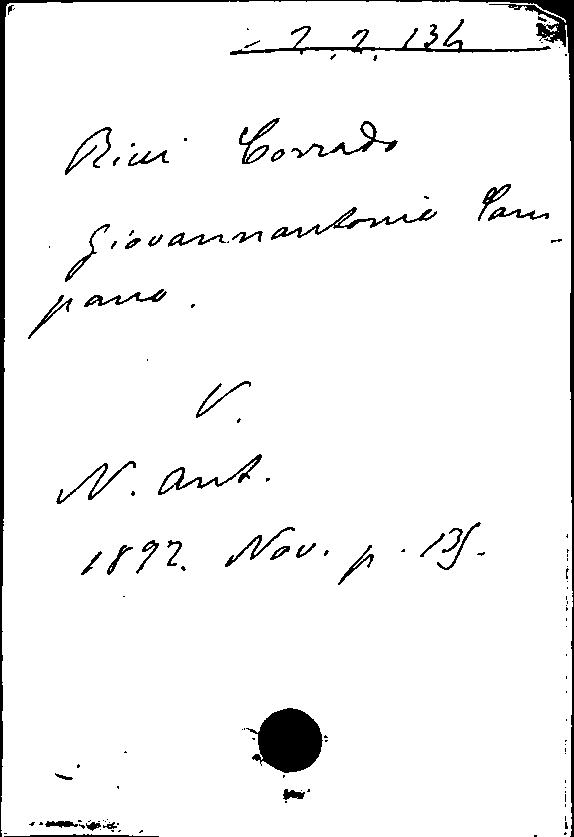 2. 2. 134
Ricci Corrado
Giovannantonio Cam-
pano.
V.
N. Ant.
1892. Nov. p. 135.